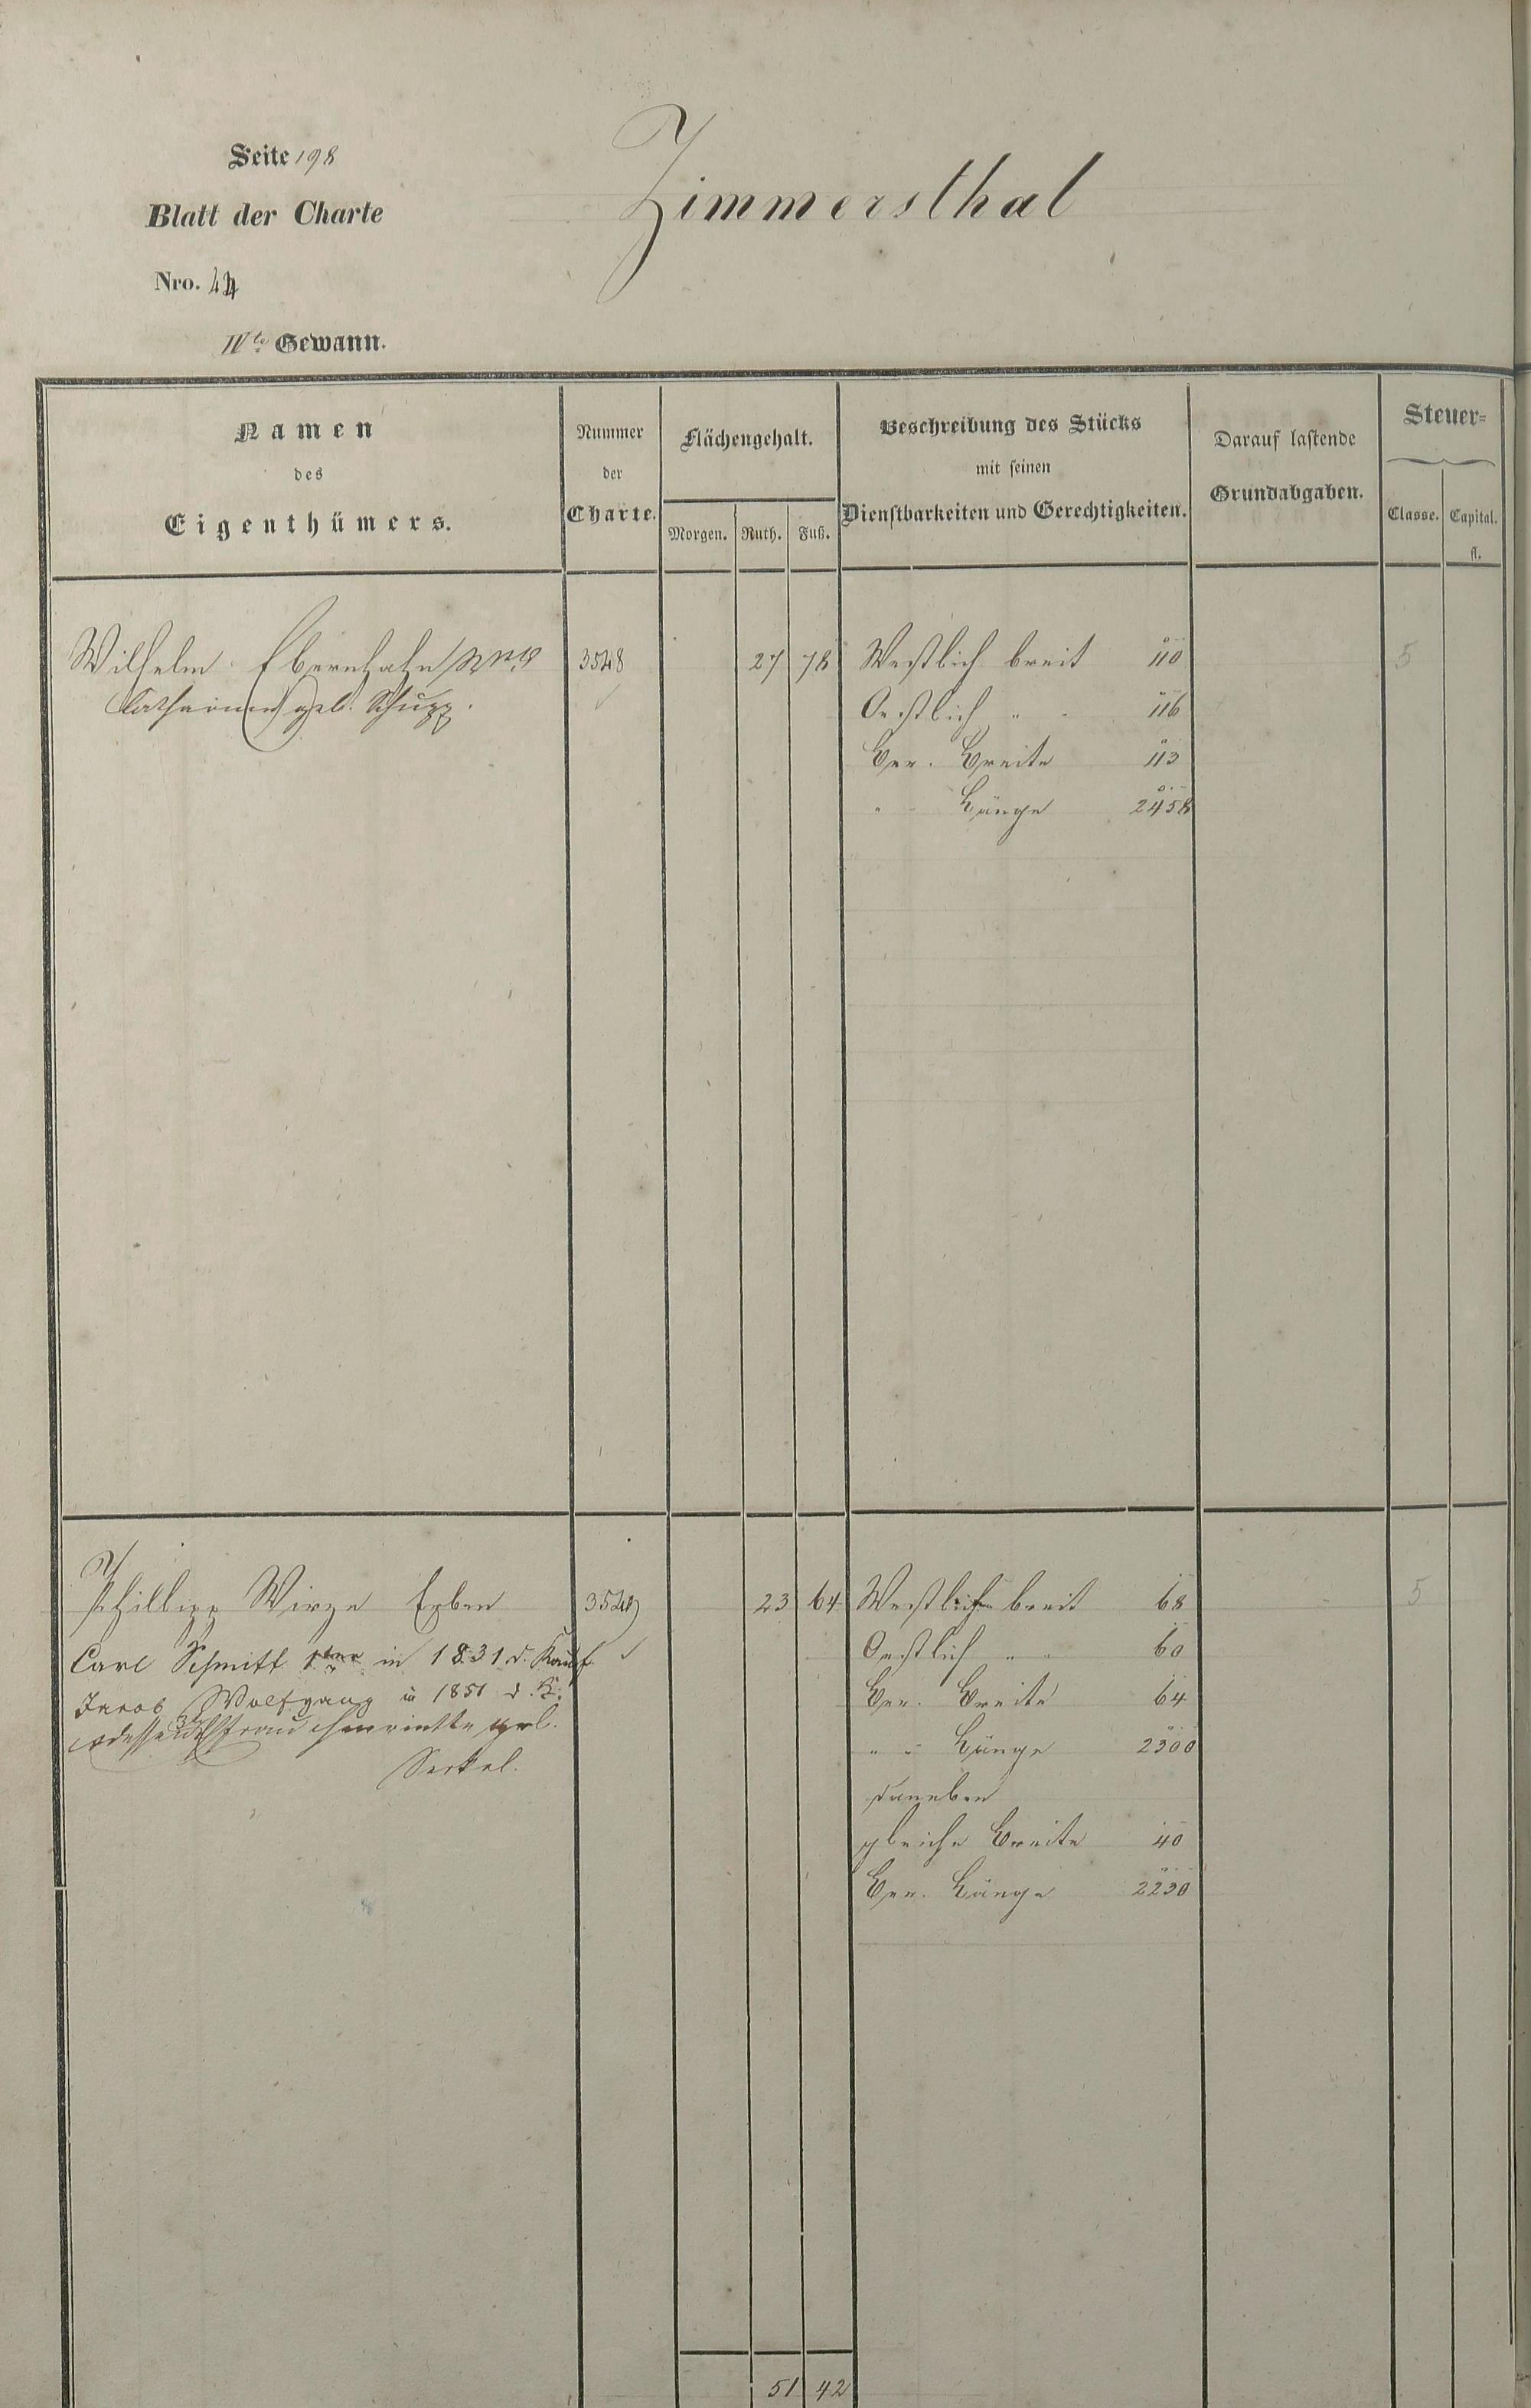 Seite 198
Zimmersthal
Blatt der Charte
Nro. 44
IVte Gewann.
Namen
des
Eigenthümers.
Nummer
der
Charte.
Flächengehalt.
Morgen. Ruth. Fuß.
Beschreibung des Stücks
mit seinen
Dienstbarkeiten und Gerechtigkeiten.
Darauf lastende
Grundabgaben.
Steuer-
Classe. Capital.
fl.
Wilhelm 3548 27 78 Westlich breit 110 5
Catharina geb. Schupp. Oestlich " " 116
Ger. Breite 113
" Länge 2458
Phillipp Wirge Erben 3549 23 64 Westlich breit 68 5
Carl Schmitt in 1831 d. Kauf Oestlich " " 60
Jacob Wolfgang in 1851 d. K. Ger. Breite 64
dessen Ehefrau Henriette geb. " " Länge 2300
Serkel.
daneben
gleiche Breite 40
Ger. Länge 2230
51 42